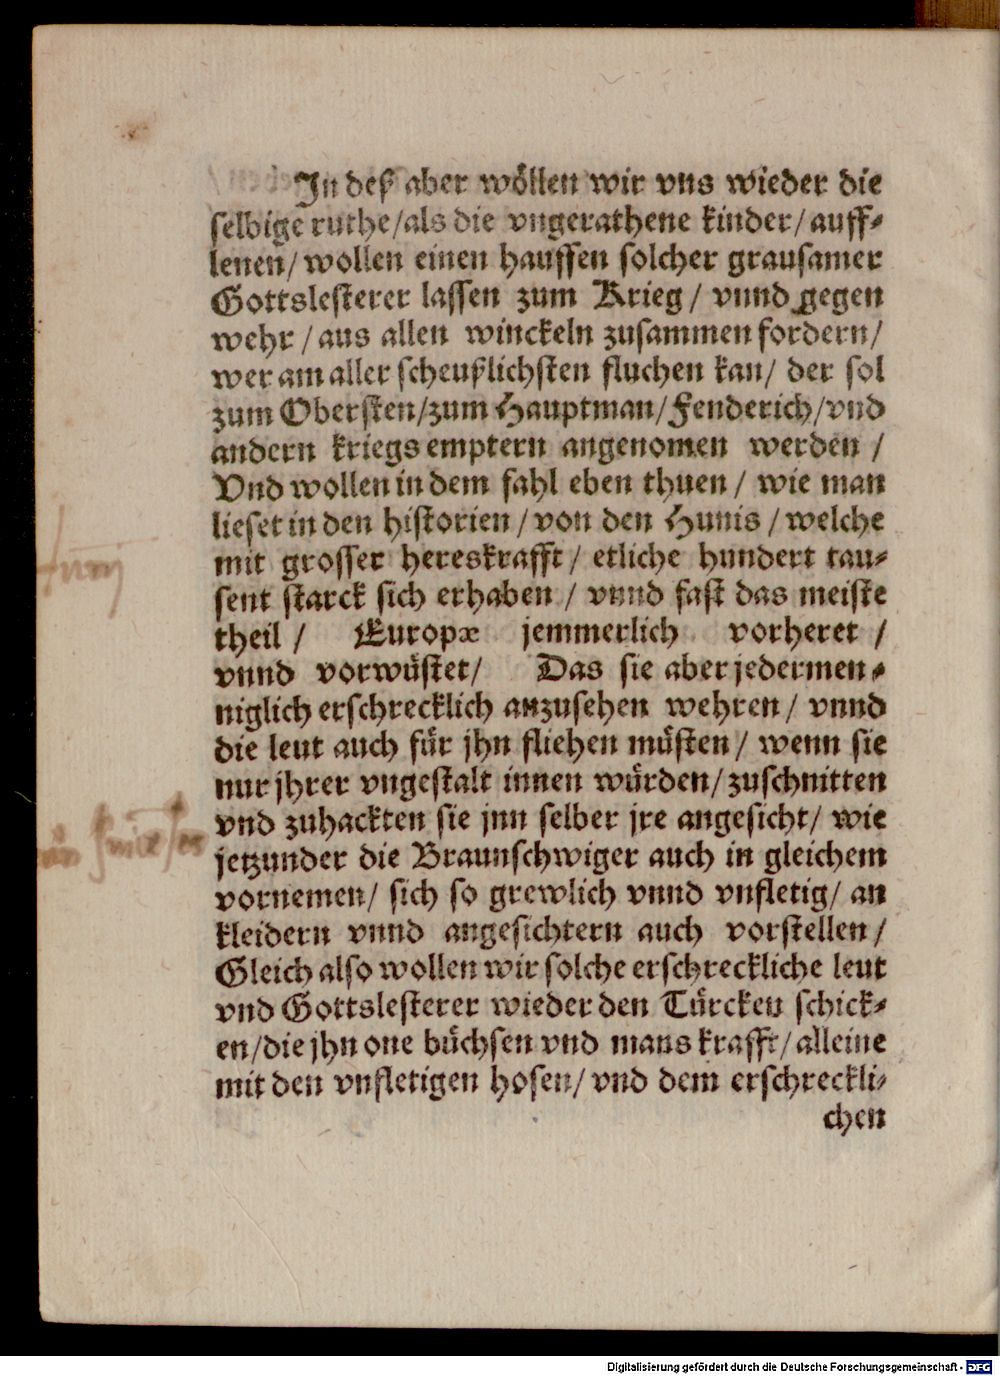 In deß aber wöllen wir vns wieder die
selbige ruthe/als die vngerathene kinder/auff-
lenen/wollen einen hauffen solcher grausamer
Gottslesterer lassen zum Krieg/ vnnd gegen
wehr/aus allen winckeln zusammen fordern/
wer am aller scheußlichsten fluchen kan/ der sol
zum Obersten/zum Hauptman/Fenderich/vnd
andern kriegs emptern angenomen werden /
Vnd wollen in dem fahl eben thuen/ wie man
lieset in den historien/von den Hunis/welche
mit grosser hereskrafft/ etliche hundert tau-
sent starck sich erhaben / vnnd fast das meiste
theil / Europæ jemmerlich vorheret /
vnnd vorwüstet/ Das sie aber jedermen-
niglich erschrecklich anzusehen wehren/ vnnd
die leut auch für jhn fliehen müsten/ wenn sie
nur jhrer vngestalt innen würden/zuschnitten
vnd zuhackten sie jnn selber jre angesicht/ wie
jetzunder die Braunschwiger auch in gleichem
vornemen/ sich so grewlich vnnd vnfletig/ an
kleidern vnnd angesichtern auch vorstellen/
Gleich also wollen wir solche erschreckliche leut
vnd Gottslesterer wieder den Türcken schick-
en/die jhn one büchsen vnd mans krafft/alleine
mit den vnfletigen hosen/ vnd dem erschreckli-
chen
Hunij
Digitalisierung gefördert durch die Deutsche Forschungsgemeinschaft - DFG